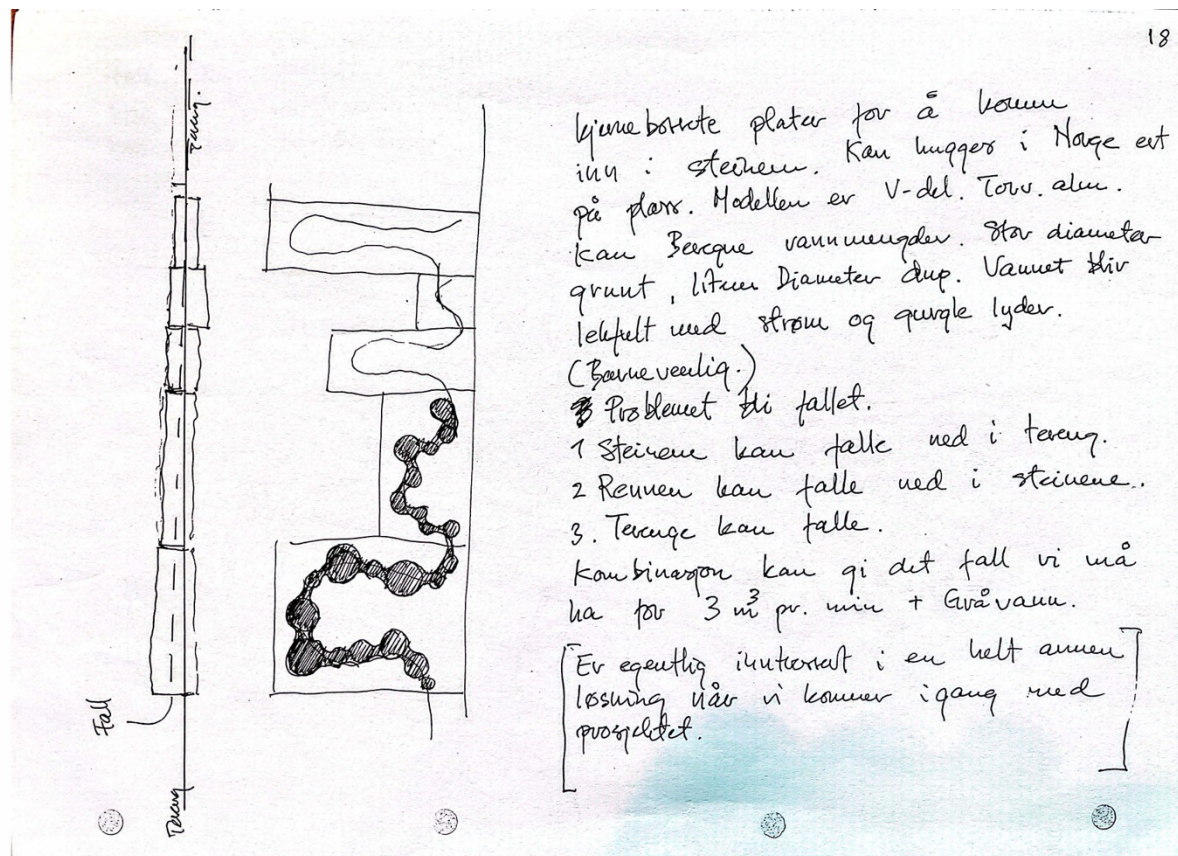 18
kjerneborrete plater for å komme
inn i steinene. Kan hugges i Norge evt
på plass. Modellen er V-del. Torv. alm.
kan Beregne vannmengder. Stor diameter
grunt, liten Diameter dyp. Vannet blir
lekfult med strøm og gurgle lyder.
(Barnevenlig.)
Problemet bli fallet.
1 Steinene kan falle ned i tereng.
2 Rennen kan falle ned i steinene.
3. Terenge kan falle.
Kombinasjon kan gi det fall vi må
ha for 3 m³ pr. min + Gråvann.
[Er egentlig inntressert i en helt annen
løsning når vi kommer igang med
prosjektet.]
Tereng.
Fall
Tereng